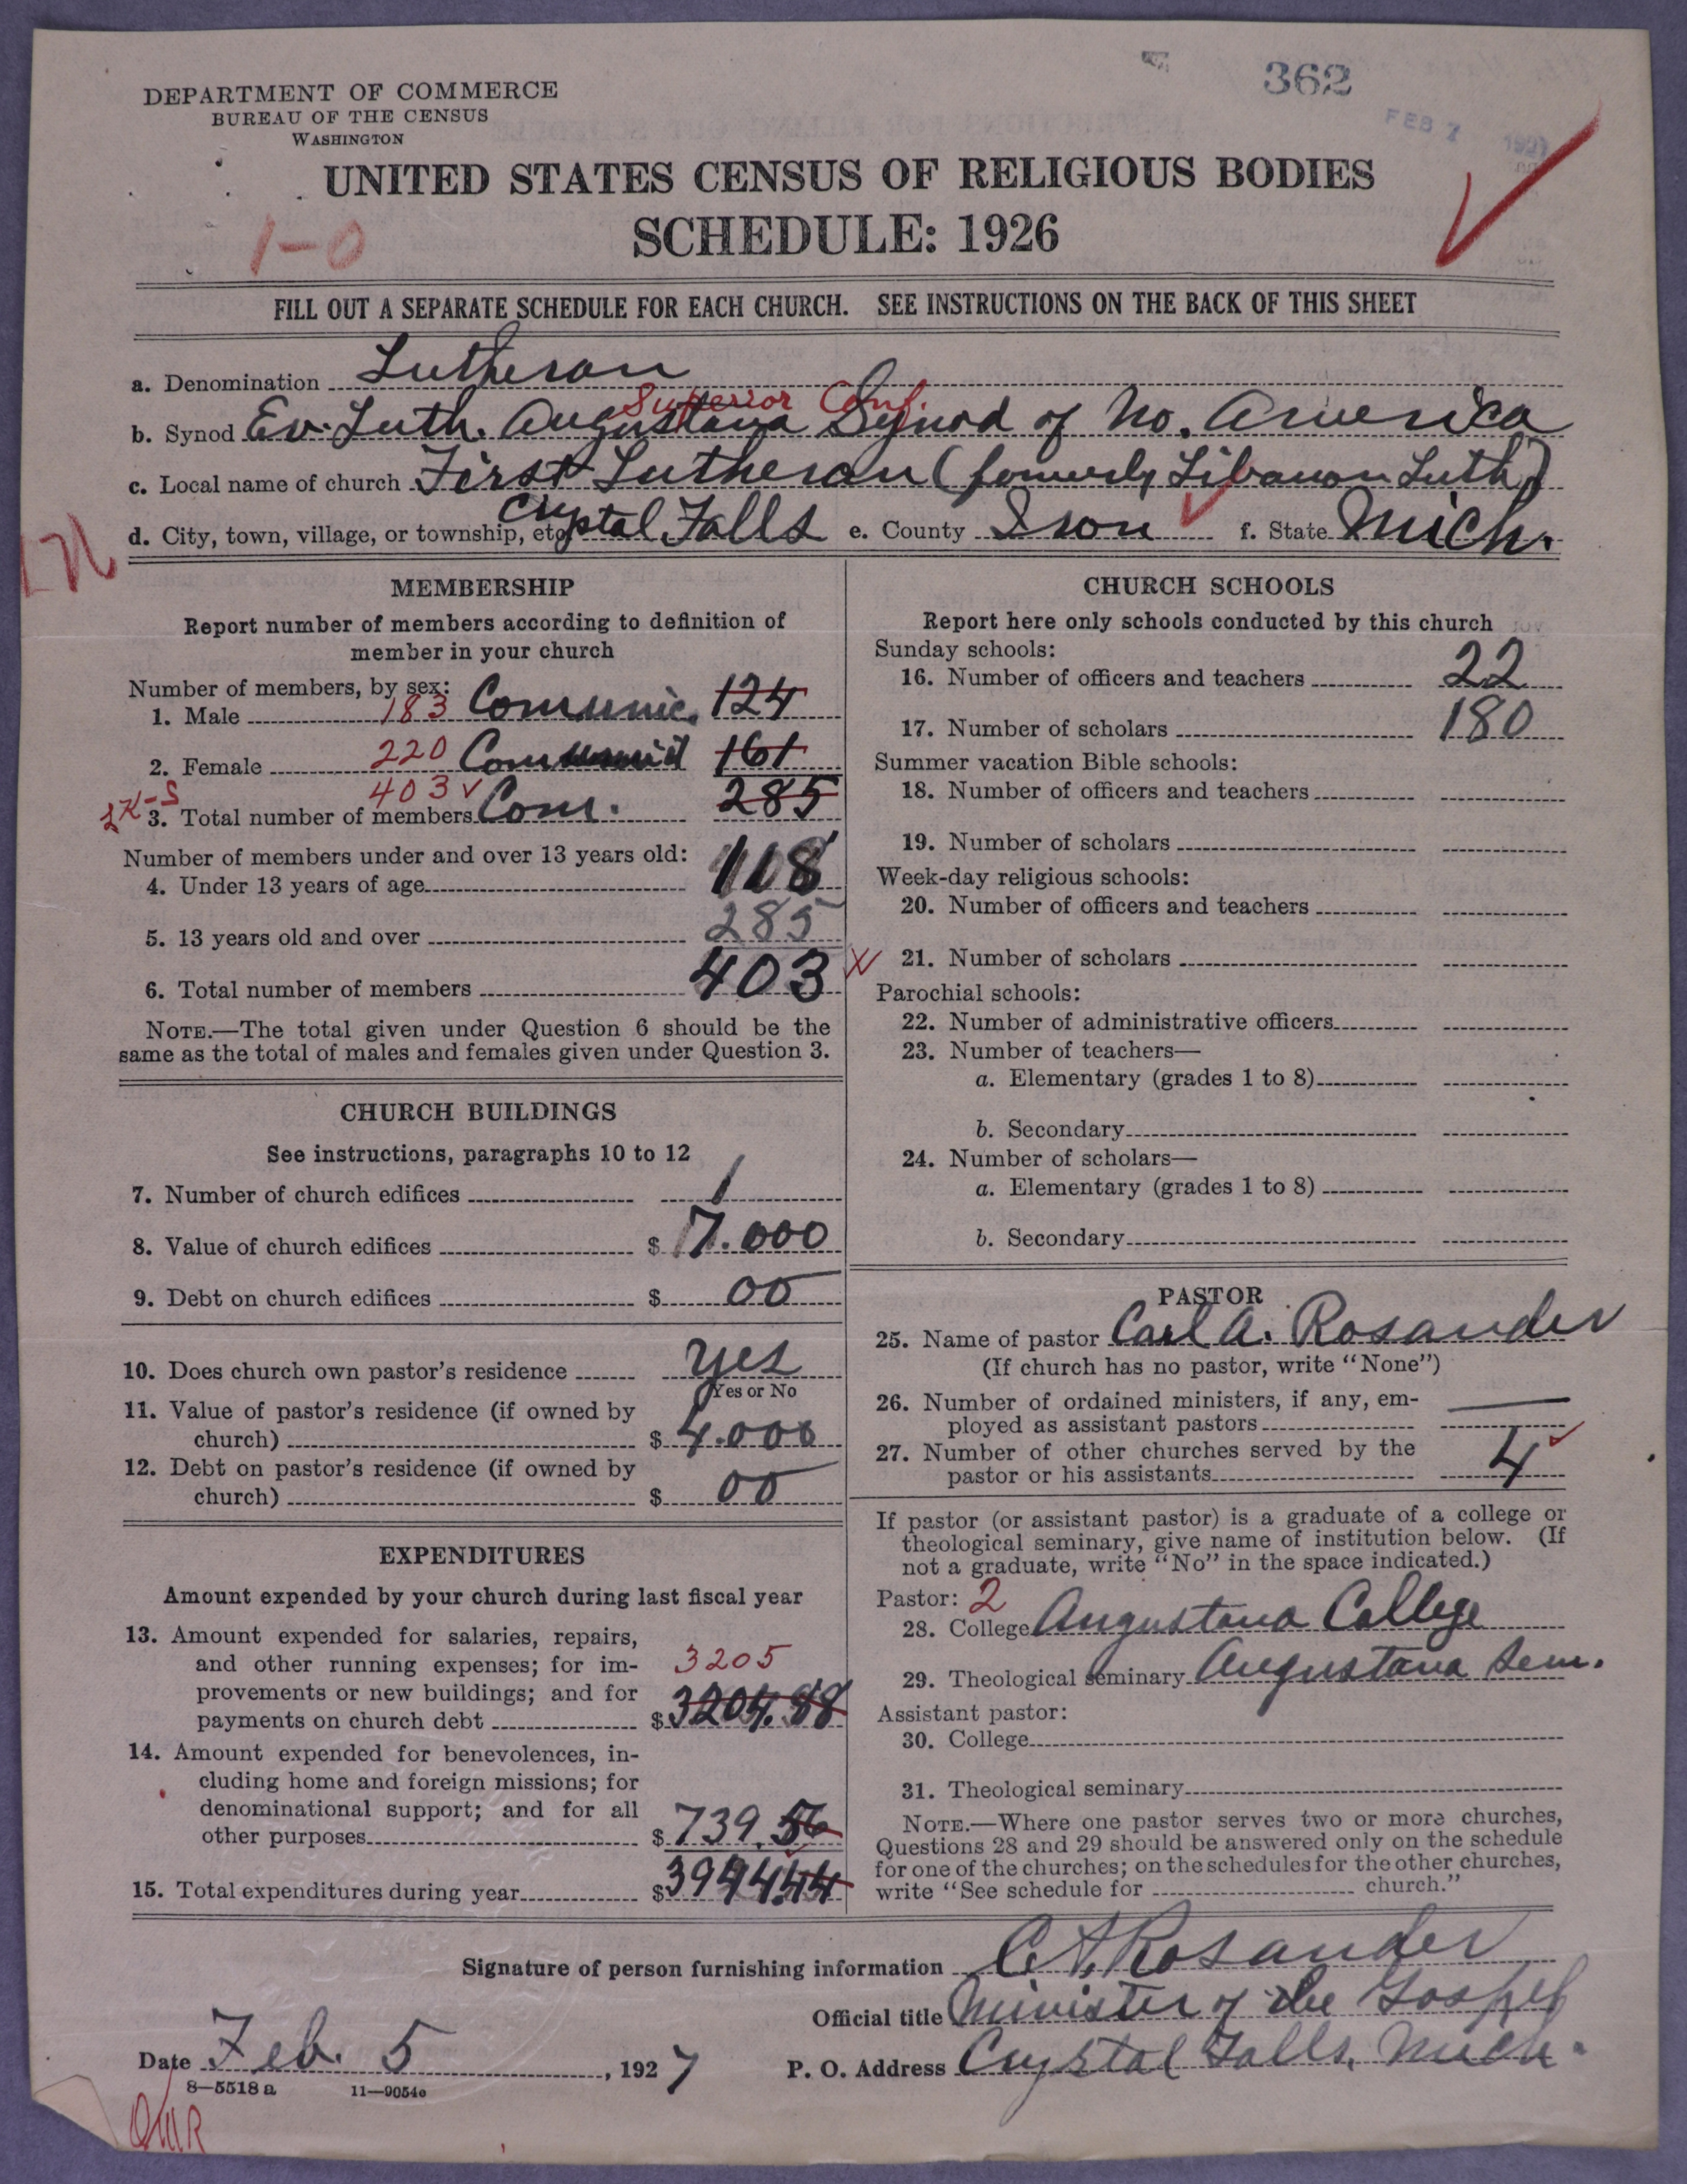 362
FEB 7 1927
DEPARTMENT OF COMMERCE
BUREAU OF THE CENSUS
WASHINGTON
UNITED STATES CENSUS OF RELIGIOUS BODIES
SCHEDULE: 1926
1-0
FILL OUT A SEPARATE SCHEDULE FOR EACH CHURCH. SEE INSTRUCTIONS ON THE BACK OF THIS SHEET
a. Denomination Lutheran
Superior Conf.
b. Synod Ev. Luth. Augustana Synod of No. America
c. Local name of church First Lutheran (formerly Libanon Luth)
d. City, town, village, or township, etc. Crystal Falls e. County Iron f. State Mich.
MEMBERSHIP
Report number of members according to definition of
member in your church
Number of members, by sex:
1. Male 183 Communic. 124
2. Female 220 Communic 161
3. Total number of members 403 Com. 285
Number of members under and over 13 years old:
4. Under 13 years of age 118
5. 13 years old and over 285
6. Total number of members 403
NOTE.—The total given under Question 6 should be the
same as the total of males and females given under Question 3.
CHURCH BUILDINGS
See instructions, paragraphs 10 to 12
7. Number of church edifices 1
8. Value of church edifices $ 17.000
9. Debt on church edifices $ 00
10. Does church own pastor's residence yes
Yes or No
11. Value of pastor's residence (if owned by
church) $ 4.000
12. Debt on pastor's residence (if owned by
church) $ 00
EXPENDITURES
Amount expended by your church during last fiscal year
13. Amount expended for salaries, repairs,
and other running expenses; for im- 3205
provements or new buildings; and for
payments on church debt $ 3204.88
14. Amount expended for benevolences, in-
cluding home and foreign missions; for
denominational support; and for all
other purposes $ 739.56
15. Total expenditures during year $ 3944.44
CHURCH SCHOOLS
Report here only schools conducted by this church
Sunday schools:
16. Number of officers and teachers 22
17. Number of scholars 180
Summer vacation Bible schools:
18. Number of officers and teachers
19. Number of scholars
Week-day religious schools:
20. Number of officers and teachers
21. Number of scholars
Parochial schools:
22. Number of administrative officers
23. Number of teachers—
a. Elementary (grades 1 to 8)
b. Secondary
24. Number of scholars—
a. Elementary (grades 1 to 8)
b. Secondary
PASTOR
25. Name of pastor Carl A. Rosander
(If church has no pastor, write "None")
26. Number of ordained ministers, if any, em-
ployed as assistant pastors —
27. Number of other churches served by the
pastor or his assistants 4
If pastor (or assistant pastor) is a graduate of a college or
theological seminary, give name of institution below. (If
not a graduate, write "No" in the space indicated.)
Pastor: 2
28. College Augustana College
29. Theological seminary Augustana Sem.
Assistant pastor:
30. College
31. Theological seminary
NOTE.—Where one pastor serves two or more churches,
Questions 28 and 29 should be answered only on the schedule
for one of the churches; on the schedules for the other churches,
write "See schedule for church."
Signature of person furnishing information C.A. Rosander
Official title Minister of the Gospel
Date Feb. 5, 1927 P. O. Address Crystal Falls, Mich.
8—5518 a 11—9054c